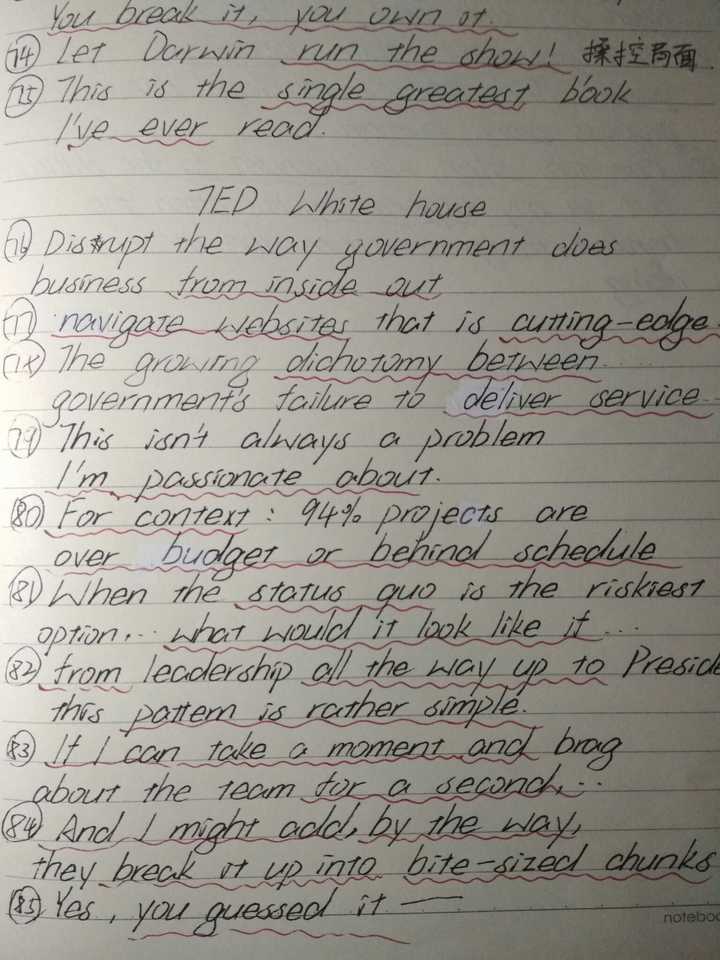 You break it, you own it.
(74) Let Darwin run the show! 操控局面.
(75) This is the single greatest book
I've ever read.
TED White house
(76) Disrupt the way government does
business from inside out
(77) navigate websites that is cutting-edge.
(78) The growing dichotomy between
government's failure to deliver service..
(79) This isn't always a problem
I'm passionate about.
(80) For context: 94% projects are
over budget or behind schedule
(81) When the status quo is the riskiest
option,... what would it look like if...
(82) from leadership all the way up to Preside
this pattern is rather simple.
(83) If I can take a moment and brag
about the team for a second,...
(84) And I might add, by the way,
they break it up into bite-sized chunks
(85) Yes, you guessed it —
noteboo